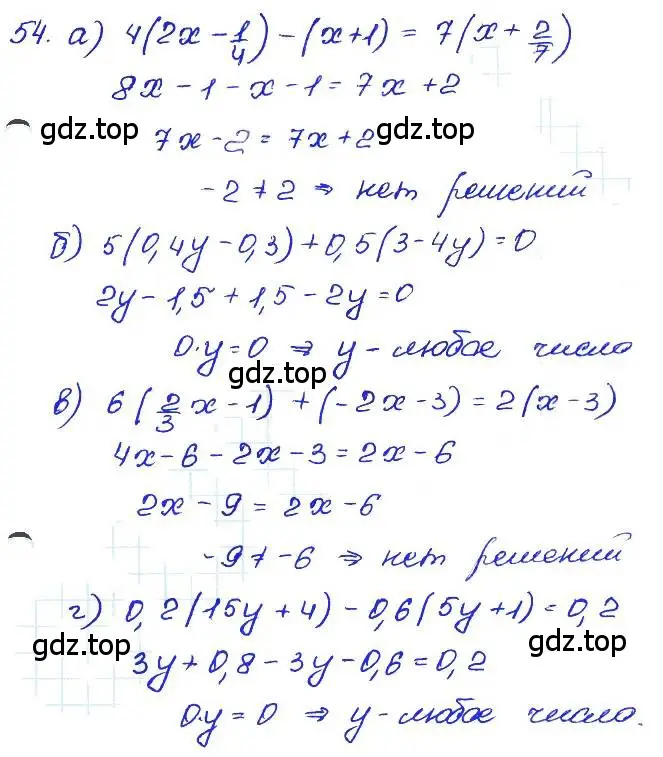 54. а) 4(2x - 1/4) - (x+1) = 7(x + 2/7)
8x - 1 - x - 1 = 7x + 2
gdz.top 7x - 2 = 7x + 2 gdz.top
-2 ≠ 2 ⇒ нет решений
б) 5(0,4y - 0,3) + 0,5(3 - 4y) = 0
2y - 1,5 + 1,5 - 2y = 0
0·y = 0 ⇒ y - любое число
gdz.top
в) 6(2/3x - 1) + (-2x - 3) = 2(x - 3)
4x - 6 - 2x - 3 = 2x - 6
2x - 9 = 2x - 6
-9 ≠ -6 ⇒ нет решений
г) 0,2(15y + 4) - 0,6(5y + 1) = 0,2
gdz.top 3y + 0,8 - 3y - 0,6 = 0,2 gdz.top
0·y = 0 ⇒ y - любое число.